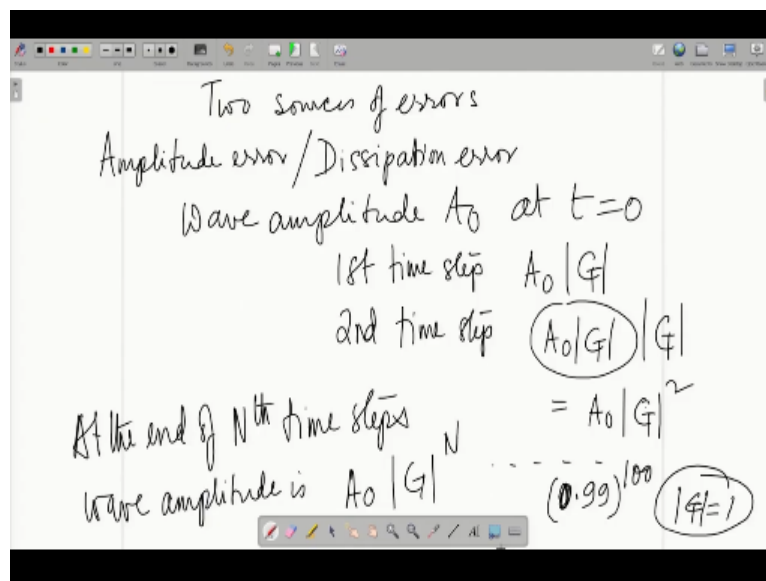 Two sources of errors
Amplitude error/Dissipation error
Wave amplitude A₀ at t=0
1st time step A₀|G|
2nd time step A₀|G| |G|
= A₀|G|²
At the end of Nᵗʰ time steps
wave amplitude is A₀|G|ᴺ ...... (0.99)¹⁰⁰ |G|=1